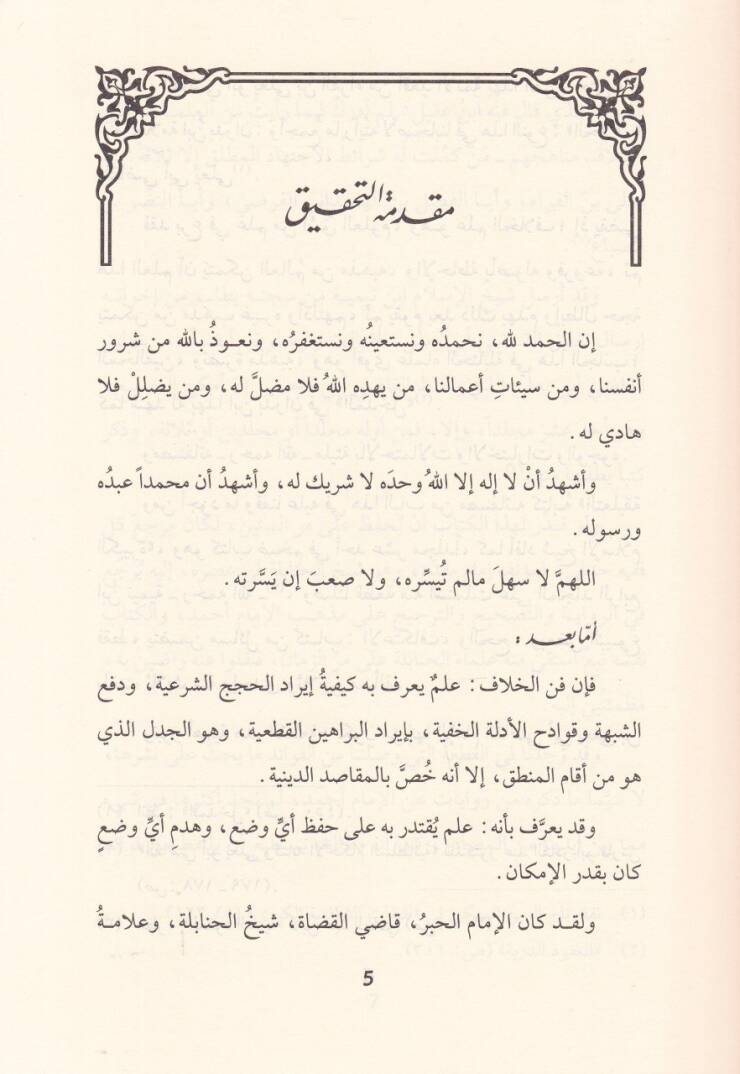 مقدمة التحقيق
إن الحمد لله، نحمدُه ونستعينُه ونستغفرُه، ونعـوذُ بالله من شرور
أنفسنا، ومن سيئاتِ أعمالنا، من يهدِه اللهُ فلا مضلَّ له، ومن يضللْ فلا
هادي له.
وأشهدُ أنْ لا إله إلا اللهُ وحدَه لا شريك له، وأشهدُ أن محمداً عبدُه
ورسوله.
اللهمَّ لا سهلَ مالم تُيسِّره، ولا صعبَ إن يَسَّرته.
أمّا بعد:
فإن فن الخلاف: علمٌ يعرف به كيفيةُ إيراد الحجج الشرعية، ودفع
الشبهة وقوادح الأدلة الخفية، بإيراد البراهين القطعية، وهو الجدل الذي
هو من أقام المنطق، إلا أنه خُصَّ بالمقاصد الدينية.
وقد يعرَّف بأنه: علم يُقتدر به على حفظ أيِّ وضع، وهدمِ أيِّ وضعٍ
كان بقدر الإمكان.
ولقـد كان الإمام الحبرُ، قاضي القضاة، شيخُ الحنابلة، وعلامـةُ
5